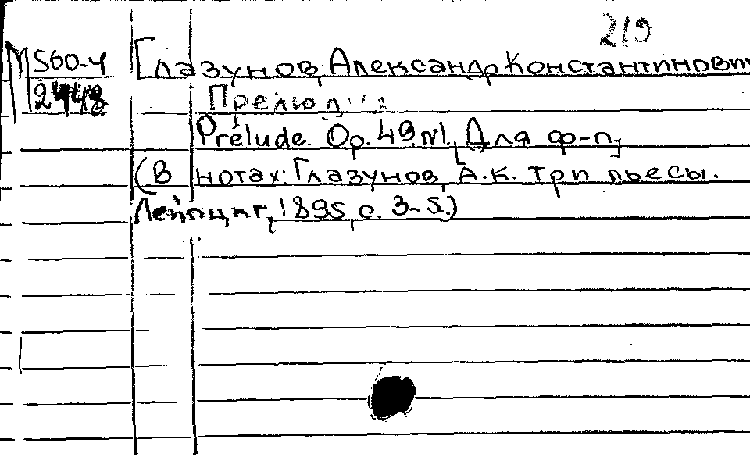 219
М 560-4 Глазунов, Александр Константинович
2448 Прелюд
Prélude. Op. 49 №1. [Для ф-п]
(В нотах: Глазунов, А.К. Три пьесы.
Лейпциг, 1895, с. 3-5.)